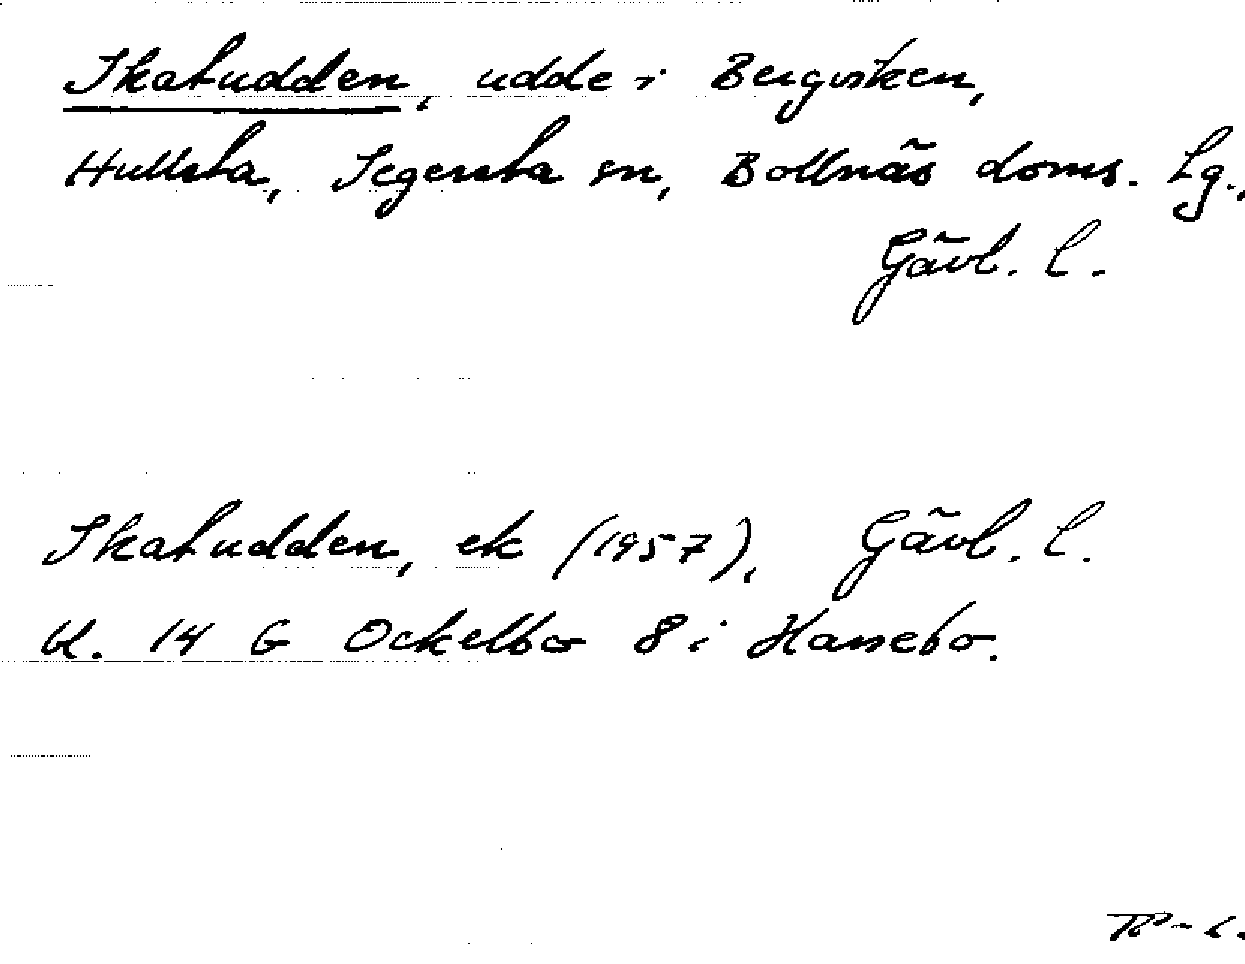 Skatudden, udde i Bergviken,
Hullsta, Segersta sn, Bollnäs doms. Lg.,
Gävl. l.
Skatudden, ek (1957), Gävl. l.
bl. 14 G Ockelbo 8 i Hanebo.